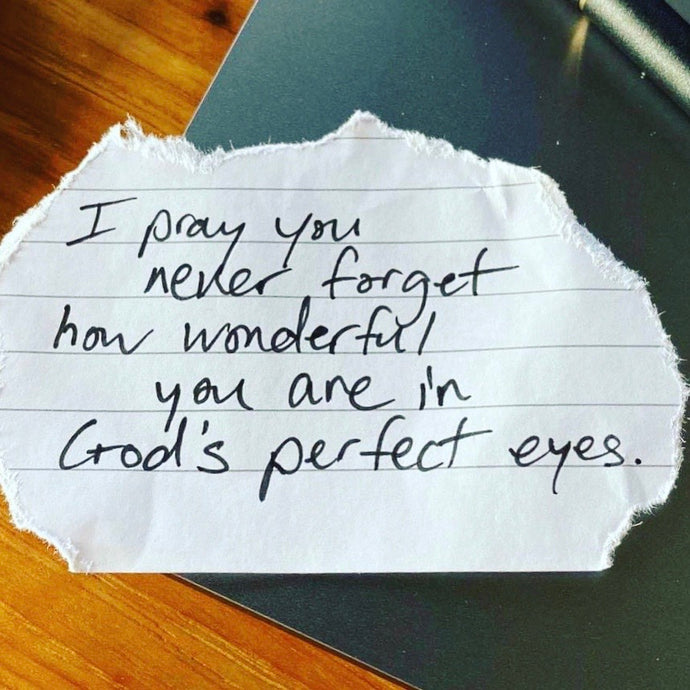 I pray you
never forget
how wonderful
you are in
God's perfect eyes.